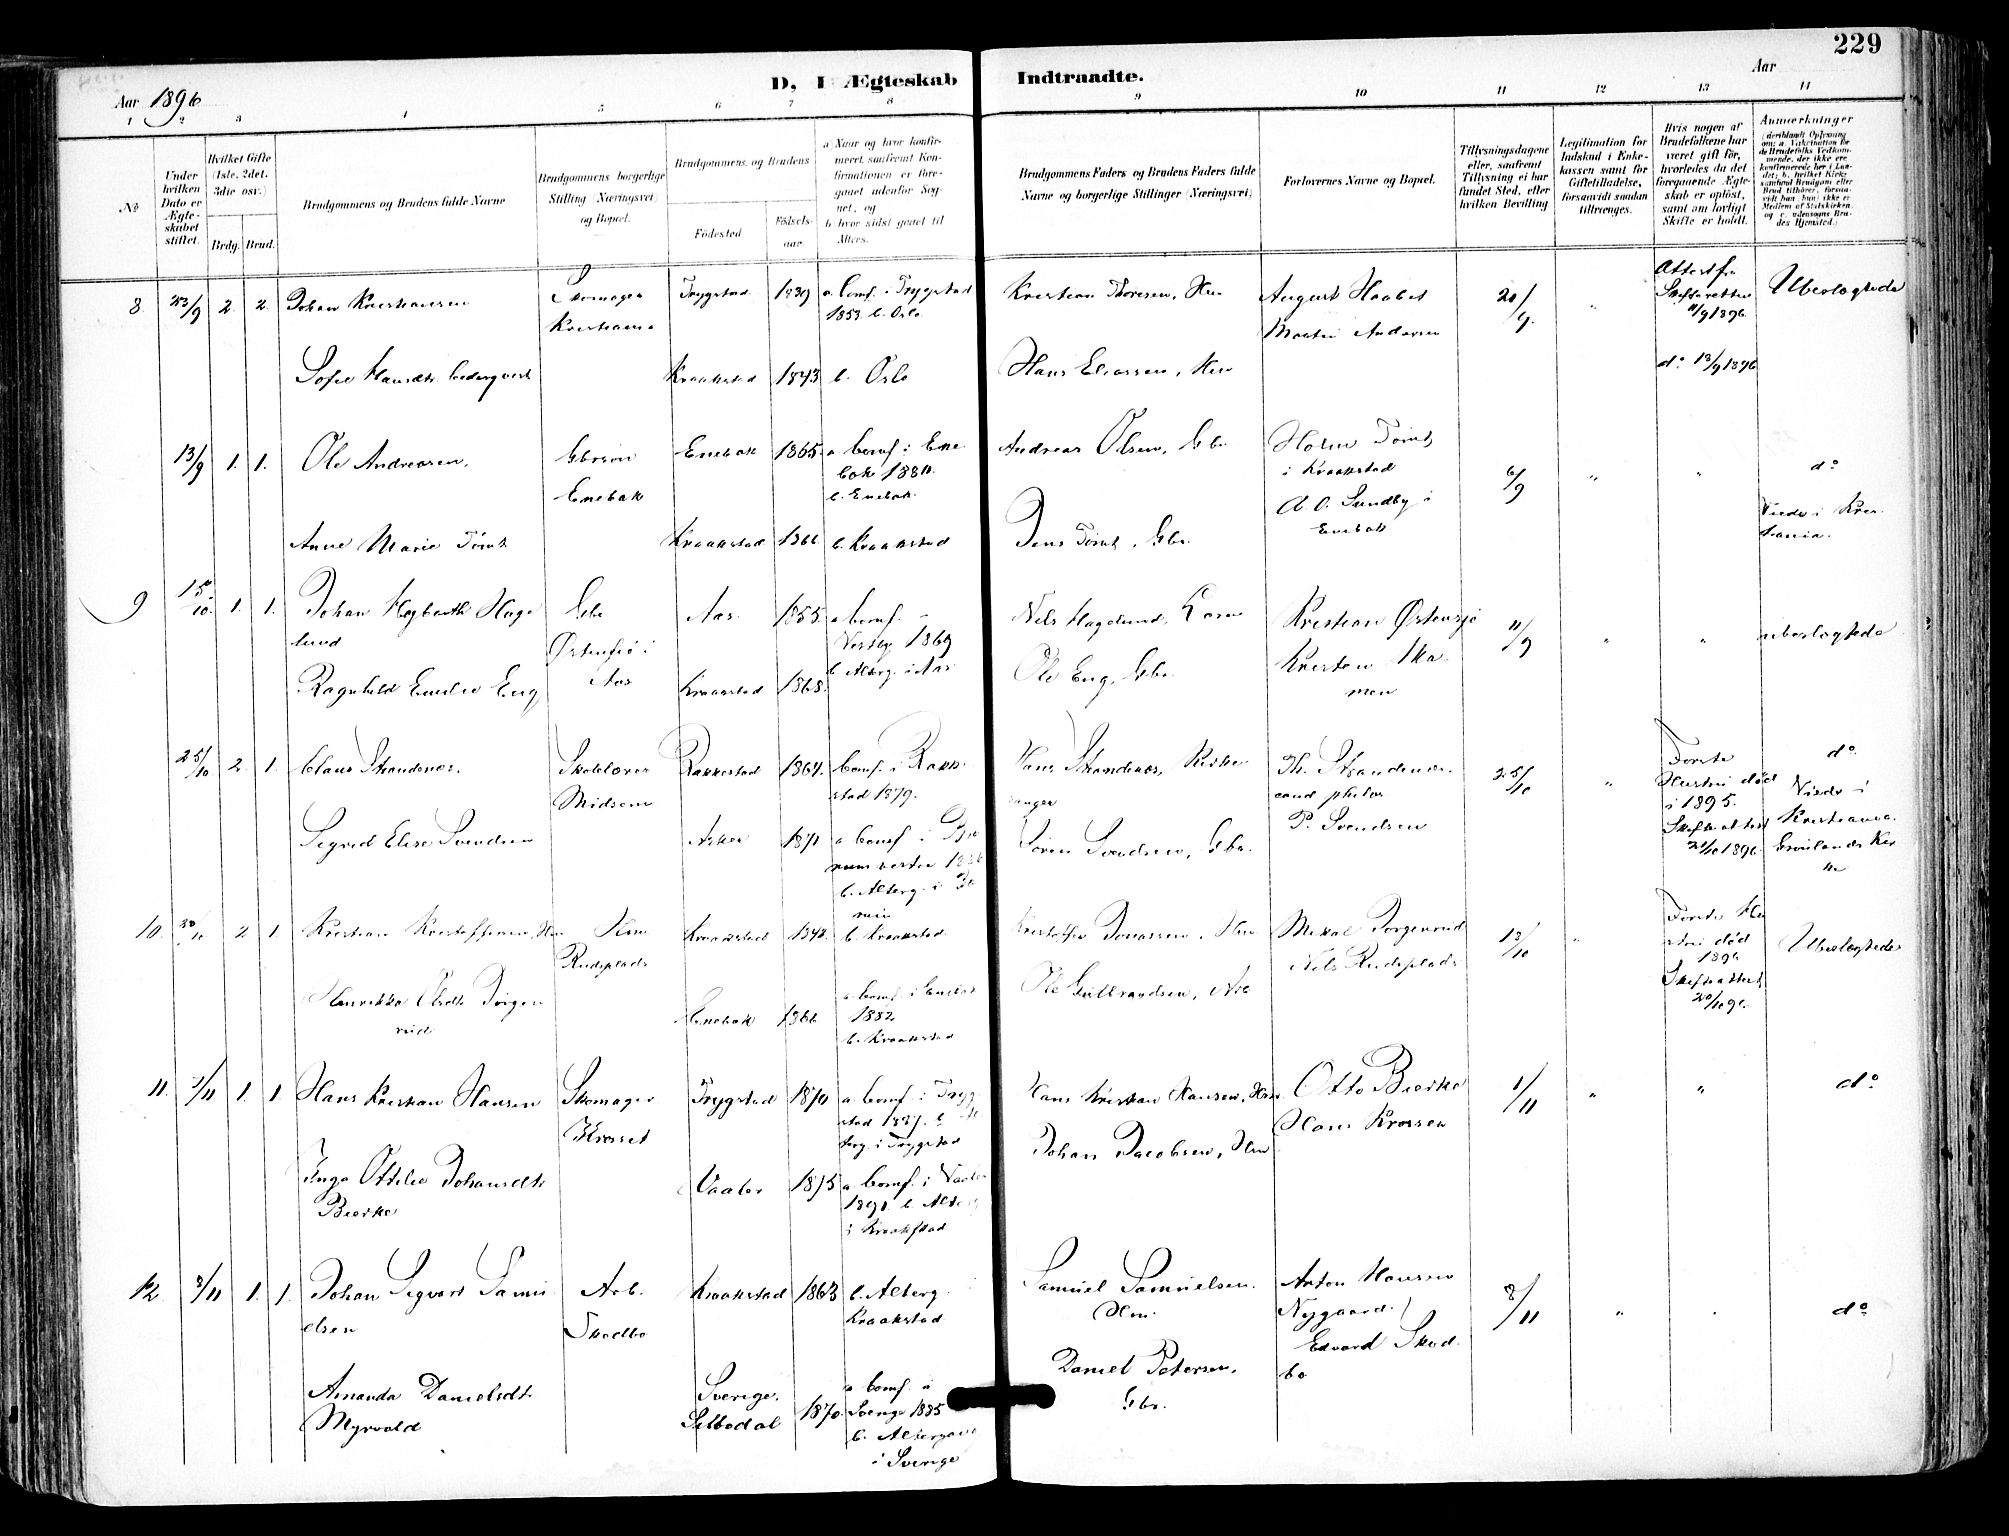 229
D, I Ægteskab Indtraadte.
Aar 1896
Aar
1 2 3 4 5 6 7 8 9 10 11 12 13 14
No
Under hvilken Dato er Ægteskabet stiftet.
Hvilket Gifte (1ste, 2det, 3die osv.)
Brdg. Brud.
Brudgommens og Brudens fulde Navne
Brudgommens borgerlige Stilling (Næringsvei) og Bopæl.
Brudgommens og Brudens
Fødested. Fødselsaar.
a Naar og hvor konfirmeret, saafremt Konfirmationen er foregaaet udenfor Sognet, og
b hvor sidst gaaet til Alters.
Brudgommens Faders og Brudens Faders fulde Navne og borgerlige Stillinger (Næringsvei)
Forlovernes Navne og Bopæl.
Tillysningsdagene eller, saafremt Tillysning ei har fundet Sted, efter hvilken Bevilling
Legitimation for Indskud i Enkekassen samt for Giftetilladelse, forsaavidt saadan tiltrænges.
Hvis nogen af Brudefolkene har været gift før, hvorledes da det foregaaende Ægteskab er opløst, samt om lovligt Skifte er holdt.
Anmærkninger
8. 23/9 2. 2. Johan Kristiansen
Skomager
Kristiania
Trygstad 1839 a. Conf. i Trygstad
1853 b. Oslo
Kristian Thoresen, Hm
August Haabet
Martin Andersen
20/9.
Attest fra
Skifteretten
11/9 1896.
Ubeslægtede
Sofie Hansdtr. Cederqvist
Kraakstad 1843 b. Oslo
Hans Eliassen, Hm
do 18/9 1896
13/9 1. 1. Ole Andreasen,
Gbrsøn
Enebak
Enebak 1865. a Conf. i Ene
bak 1880.
b. Enebak.
Andreas Olsen, Gbr.
Holm Tomt,
i Kraakstad
A. O. Sundby i
Enebak
6/9
do
Viede i Kris
tiania.
Anne Marie Tomt
Kraakstad 1866 b. Kraakstad
Jens Tomt, Gbr.
9 15/10. 1. 1. Johan Hagbarth Hage
lund
Gbr
Østensjø i
Aas
Aas. 1855. a Conf. i
Vestby 1869
b. Alterg. i Aas
Nils Hagelund,
Kristian Østensjø
Kristen Ska
men
11/9
ubeslægtede
Ragnhild Emilie Eng
Kraakstad 1868.
Ole Eng, Gbr.
25/10. 2. 1. Claus Strandenæs.
Skolelærer
Midsem
Rakkestad 1864. Conf. i Rakke
stad 1879.
Hans Strandenæs, Kirke
sanger
Th. Strandenæs.
cand philos
P. Svendsen
25/10
Første
Hustru død
i 1895.
Skifteattest
21/10 1896
do
Viede i
Kristiania.
Grønlands Kir
ke
Sigrid Elise Svendsen
Asker 1871 a Conf. i
b. Alterg. i
Søren Svendsen, Gbr.
10. 30/10 2. 1. Kristian Kristoffersen, Hm
Hm
Rudsplads
Kraakstad 1840. b. Kraakstad.
Kristoffer Jonassen, Hm
Mikal Jørgenrud
Nils Rudsplads
18/10
Første Hu
stru død
1896
Skifteattest
20/10 96.
Ubeslægtede
Henrikke Olsdtr Jørgen
rud
Enebak 1866 a. Conf. i Enebak
1882
b. Kraakstad
Ole Gulbrandsen, Arb
11. 7/11 1. 1. Hans Kristian Hansen
Skomager
Krosset
Trygstad 1870 a. Conf. i Tryg
stad 1887. b. Al
terg. i Trygstad
Hans Kristian Hansen, Hm
Otto Bierke
Hans Krossen
1/11
do
Inga Ottilie Johansdtr
Bierke
Vaaler 1875 a. Conf. i Vaaler
1890 b. Alterg
i Kraakstad
Johan Jacobsen, Hm
12 8/11 1. 1. Johan Sigvart Samu
elsen
Arb.
Skodbo
Kraakstad 1863 b. Alterg.
Kraakstad
Samuel Samuelsen.
Hm.
Anton Hansen
Nygaard
Edvard Skod
bo
8/11
do
Amanda Danielsdtr
Myrvold
Sverige,
Silbodal 1870. a Conf. i
Sverige 1885
b. Altergang
i Sverige
Daniel Petersen,
Gbr.